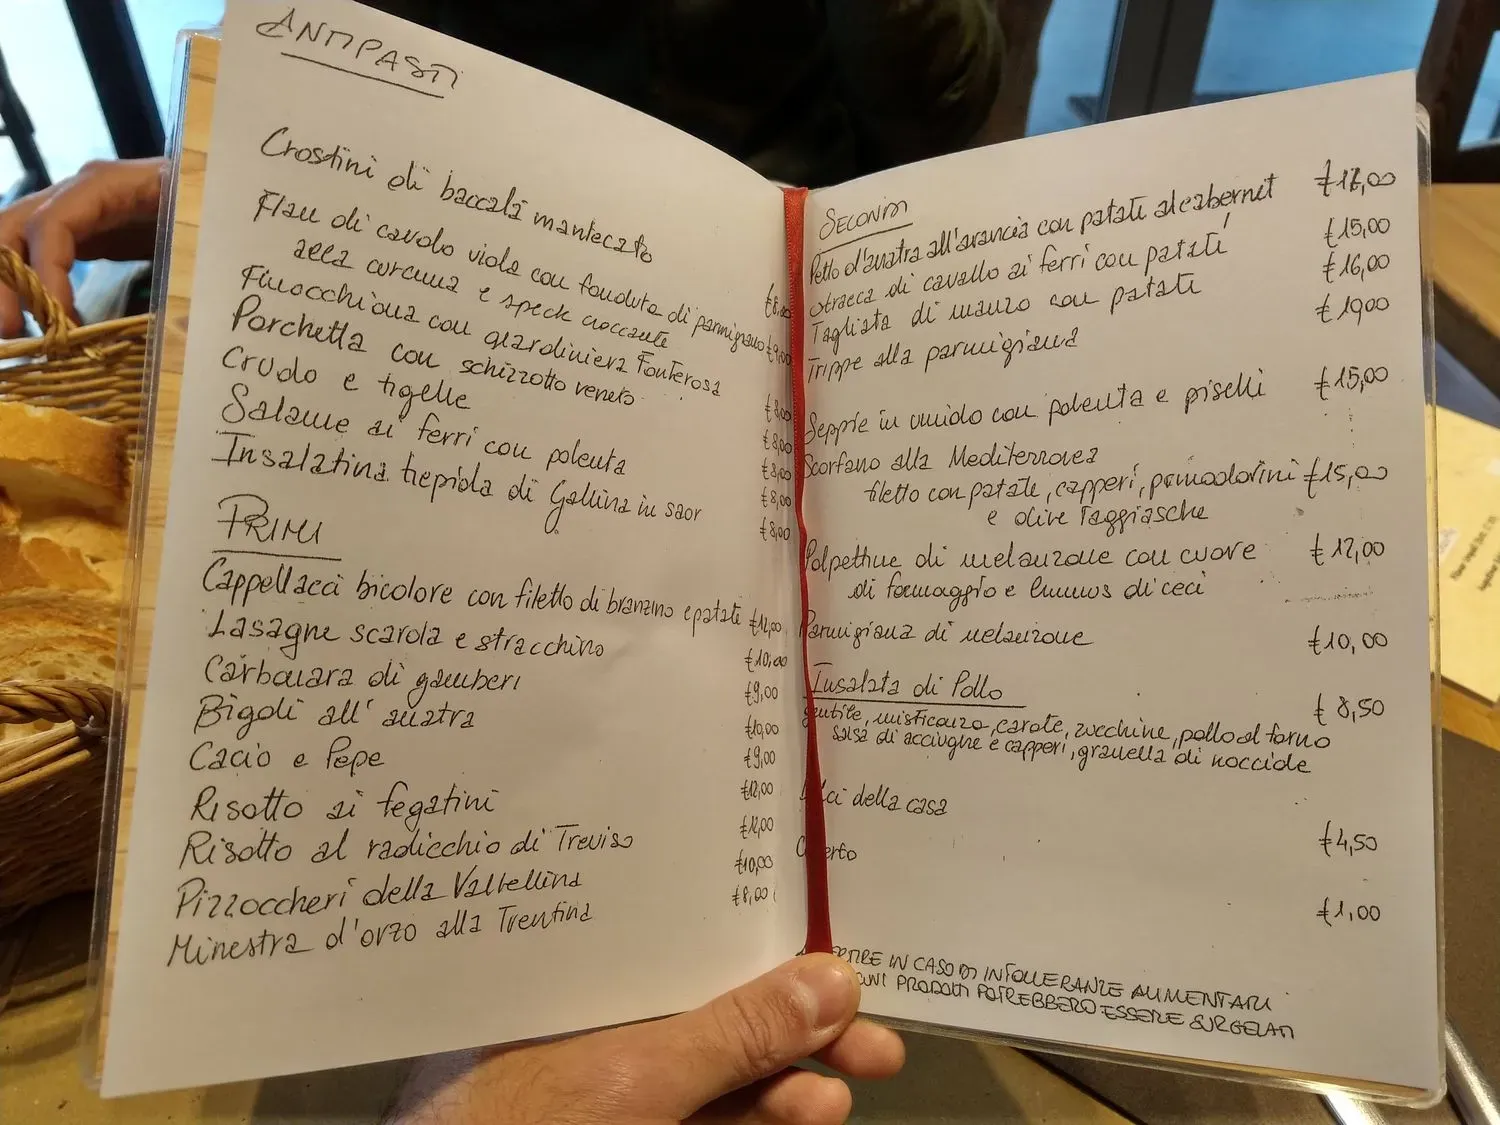 ANTIPASTI
Crostini di baccalà mantecato €8,00
Flan di cavolo viola con fonduta di parmigiano
alla curcuma e speck croccante €9,00
Finocchiona con giardiniera Fonterosa €8,00
Porchetta con schizzotto veneto €8,00
Crudo e tigelle €8,00
Salame ai ferri con polenta €8,00
Insalatina tiepida di Gallina in saor €8,00
PRIMI
Cappellacci bicolore con filetto di branzino e patate €12,00
Lasagne scarola e stracchino €10,00
Carbonara di gamberi €9,00
Bigoli all'anatra €10,00
Cacio e Pepe €9,00
Risotto ai fegatini €12,00
Risotto al radicchio di Treviso €12,00
Pizzoccheri della Valtellina €10,00
Minestra d'orzo alla Trentina €8,00
SECONDI
Petto d'anatra all'arancia con patate al cabernet
Straeca di cavallo ai ferri con patate €15,00
Tagliata di manzo con patate €16,00
Trippe alla parmigiana
Seppie in umido con polenta e piselli €15,00
Scorfano alla Mediterranea
filetto con patate, capperi, pomodorini €15,00
e olive Taggiasche
Polpettine di melanzane con cuore €12,00
di formaggio e hummus di ceci
Parmigiana di melanzane €10,00
Insalata di Pollo €8,50
gentile, misticanza, carote, zucchine, pollo al forno
salsa di acciughe e capperi, granella di nocciole
della casa €4,50
€1,00
IN CASO DI INTOLLERANZE ALIMENTARI
PRODOTTI POTREBBERO ESSERE SURGELATI